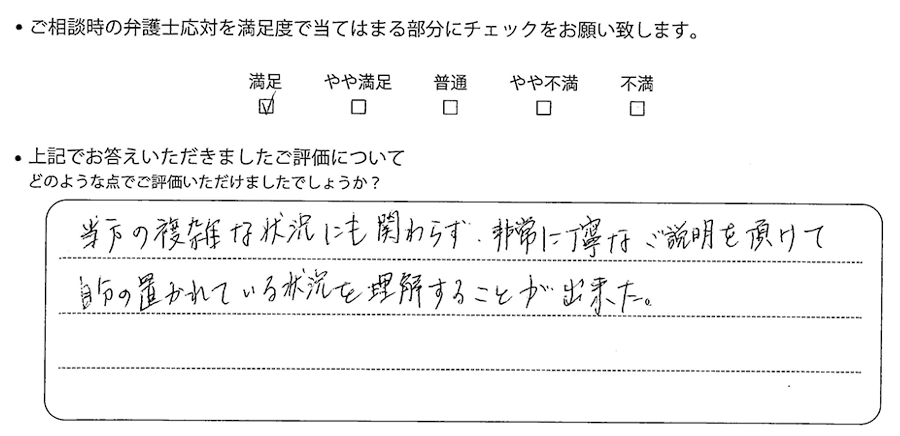 ・ご相談時の弁護士応対を満足度で当てはまる部分にチェックをお願い致します。
満足 やや満足 普通 やや不満 不満
☑ □ □ □ □
・上記でお答えいただきましたご評価について
どのような点でご評価いただけましたでしょうか？
当方の複雑な状況にも関わらず、非常に丁寧なご説明を頂けて
自分の置かれている状況を理解することが出来た。